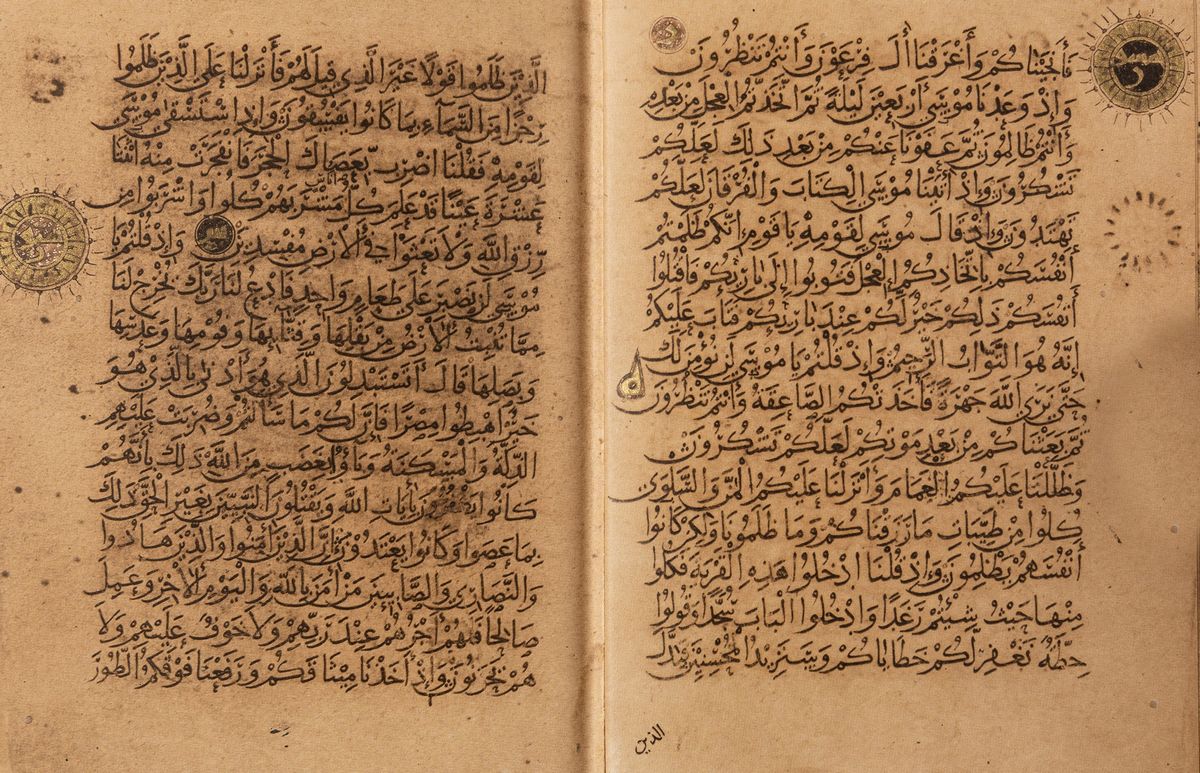 فَأَنْجَيْنَاكُمْ وَأَغْرَقْنَا أَلَ فِرْعَوْنَ وَأَنْتُمْ تَنْظُرُونَ
وَإِذْ وَعَدْنَا مُوسَى أَرْبَعِينَ لَيْلَةً ثُمَّ اتَّخَذْتُمُ الْعِجْلَ مِنْ بَعْدِهِ
وَأَنْتُمْ ظَالِمُونَ ثُمَّ عَفَوْنَا عَنْكُمْ مِنْ بَعْدِ ذَلِكَ لَعَلَّكُمْ
تَشْكُرُونَ وَإِذْ أَتَيْنَا مُوسَى الْكِتَابَ وَالْفُرْقَانَ لَعَلَّكُمْ
تَهْتَدُونَ وَإِذْ قَالَ مُوسَى لِقَوْمِهِ يَا قَوْمِ إِنَّكُمْ ظَلَمْتُمْ
أَنْفُسَكُمْ بِاتِّخَاذِكُمُ الْعِجْلَ فَتُوبُوا إِلَى بَارِئِكُمْ فَاقْتُلُوا
أَنْفُسَكُمْ ذَلِكُمْ خَيْرٌ لَكُمْ عِنْدَ بَارِئِكُمْ فَتَابَ عَلَيْكُمْ
إِنَّهُ هُوَ التَّوَّابُ الرَّحِيمُ وَإِذْ قُلْتُمْ يَا مُوسَى لَنْ نُؤْمِنَ لَكَ
حَتَّى نَرَى اللَّهَ جَهْرَةً فَأَخَذَتْكُمُ الصَّاعِقَةُ وَأَنْتُمْ تَنْظُرُونَ
ثُمَّ بَعَثْنَاكُمْ مِنْ بَعْدِ مَوْتِكُمْ لَعَلَّكُمْ تَشْكُرُونَ
وَظَلَّلْنَا عَلَيْكُمُ الْغَمَامَ وَأَنْزَلْنَا عَلَيْكُمُ الْمَنَّ وَالسَّلْوَى
كُلُوا مِنْ طَيِّبَاتِ مَا رَزَقْنَاكُمْ وَمَا ظَلَمُونَا وَلَكِنْ كَانُوا
أَنْفُسَهُمْ يَظْلِمُونَ وَإِذْ قُلْنَا ادْخُلُوا هَذِهِ الْقَرْيَةَ فَكُلُوا
مِنْهَا حَيْثُ شِئْتُمْ رَغَدًا وَادْخُلُوا الْبَابَ سُجَّدًا وَقُولُوا
حِطَّةٌ نَغْفِرْ لَكُمْ خَطَايَاكُمْ وَسَنَزِيدُ الْمُحْسِنِينَ فَبَدَّلَ
الذين
الَّذِينَ ظَلَمُوا قَوْلًا غَيْرَ الَّذِي قِيلَ لَهُمْ فَأَنْزَلْنَا عَلَى الَّذِينَ ظَلَمُوا
رِجْزًا مِنَ السَّمَاءِ بِمَا كَانُوا يَفْسُقُونَ وَإِذِ اسْتَسْقَى مُوسَى
لِقَوْمِهِ فَقُلْنَا اضْرِبْ بِعَصَاكَ الْحَجَرَ فَانْفَجَرَتْ مِنْهُ اثْنَتَا
عَشْرَةَ عَيْنًا قَدْ عَلِمَ كُلُّ أُنَاسٍ مَشْرَبَهُمْ كُلُوا وَاشْرَبُوا مِنْ
رِزْقِ اللَّهِ وَلَا تَعْثَوْا فِي الْأَرْضِ مُفْسِدِينَ وَإِذْ قُلْتُمْ يَا
مُوسَى لَنْ نَصْبِرَ عَلَى طَعَامٍ وَاحِدٍ فَادْعُ لَنَا رَبَّكَ يُخْرِجْ لَنَا
مِمَّا تُنْبِتُ الْأَرْضُ مِنْ بَقْلِهَا وَقِثَّائِهَا وَفُومِهَا وَعَدَسِهَا
وَبَصَلِهَا قَالَ أَتَسْتَبْدِلُونَ الَّذِي هُوَ أَدْنَى بِالَّذِي هُوَ
خَيْرٌ اهْبِطُوا مِصْرًا فَإِنَّ لَكُمْ مَا سَأَلْتُمْ وَضُرِبَتْ عَلَيْهِمُ
الذِّلَّةُ وَالْمَسْكَنَةُ وَبَاؤُا بِغَضَبٍ مِنَ اللَّهِ ذَلِكَ بِأَنَّهُمْ
كَانُوا يَكْفُرُونَ بِأَيَاتِ اللَّهِ وَيَقْتُلُونَ النَّبِيِّينَ بِغَيْرِ الْحَقِّ ذَلِكَ
بِمَا عَصَوْا وَكَانُوا يَعْتَدُونَ إِنَّ الَّذِينَ أَمَنُوا وَالَّذِينَ هَادُوا
وَالنَّصَارَى وَالصَّابِئِينَ مَنْ أَمَنَ بِاللَّهِ وَالْيَوْمِ الْأَخِرِ وَعَمِلَ
صَالِحًا فَلَهُمْ أَجْرُهُمْ عِنْدَ رَبِّهِمْ وَلَا خَوْفٌ عَلَيْهِمْ وَلَا
هُمْ يَحْزَنُونَ وَإِذْ أَخَذْنَا مِيثَاقَكُمْ وَرَفَعْنَا فَوْقَكُمُ الطُّورَ